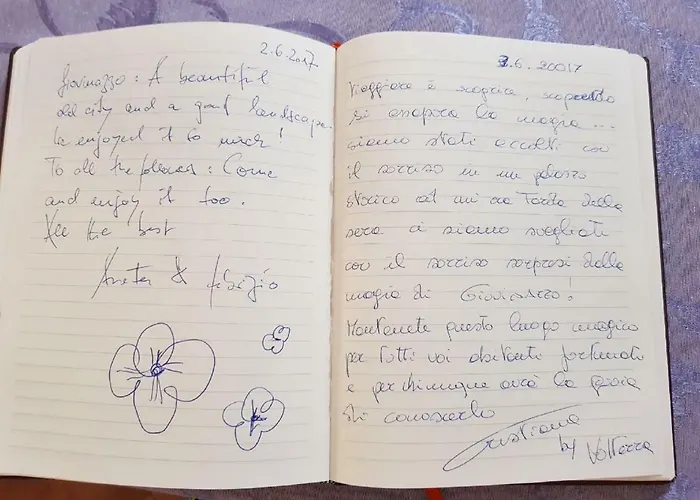 2.6.2017
Giovinazzo : A beautiful
old city and a great landscape.
We enjoyed it so much!
To all the places : Come
and enjoy it too.
All the best
&
3.6. 20017
Viaggiare è scoprire, scoprendo
si assapora la magia ...
siamo stati accolti con
il sorriso in un palazzo
storico ed mi ora tarda della
sera ci siamo svegliati
con il sorriso sorpresi dalla
magia di Giovinazzo!
Mantenete questo luogo magico
per tutti voi abitanti fortunati
e per chiunque avrà la gioia
di conoscerlo
Cristiana
by Volterra